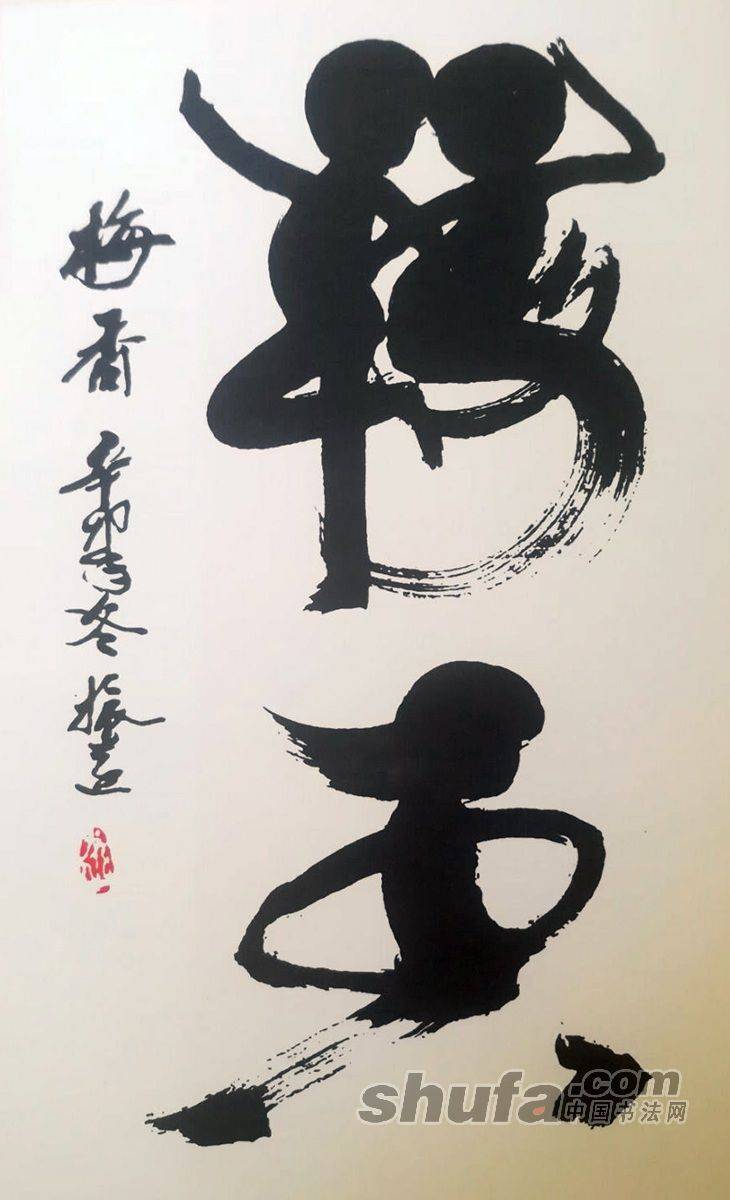 梅香
梅香 辛卯冬 振
shufa.com
中国书法网